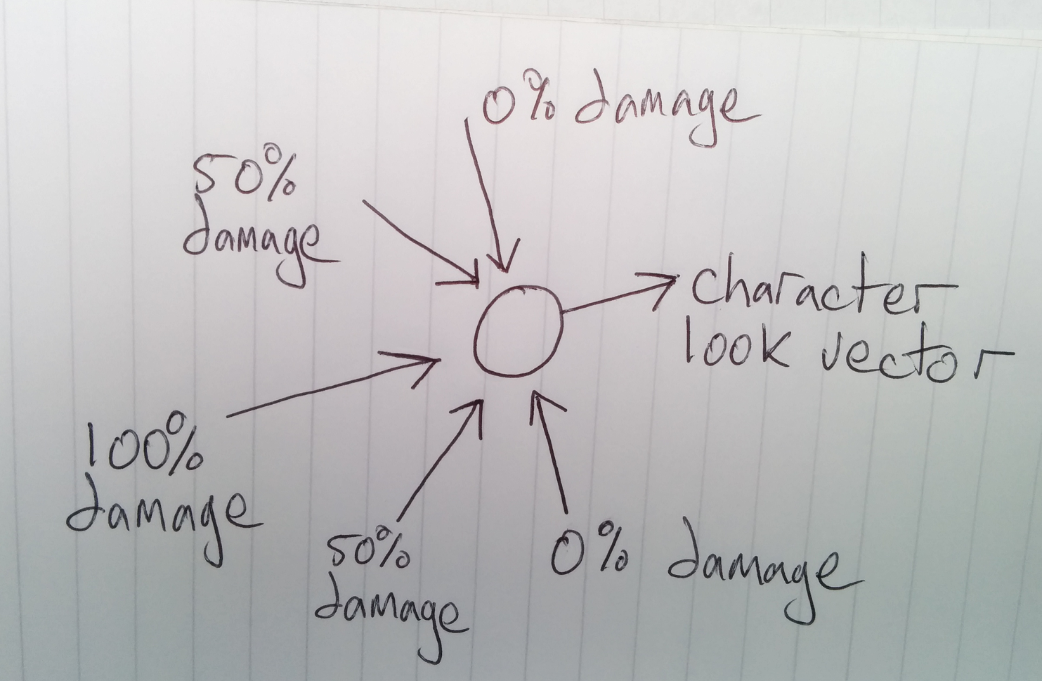 0% damage
50%
damage
character
look vector
100%
damage
50%
damage
0% damage